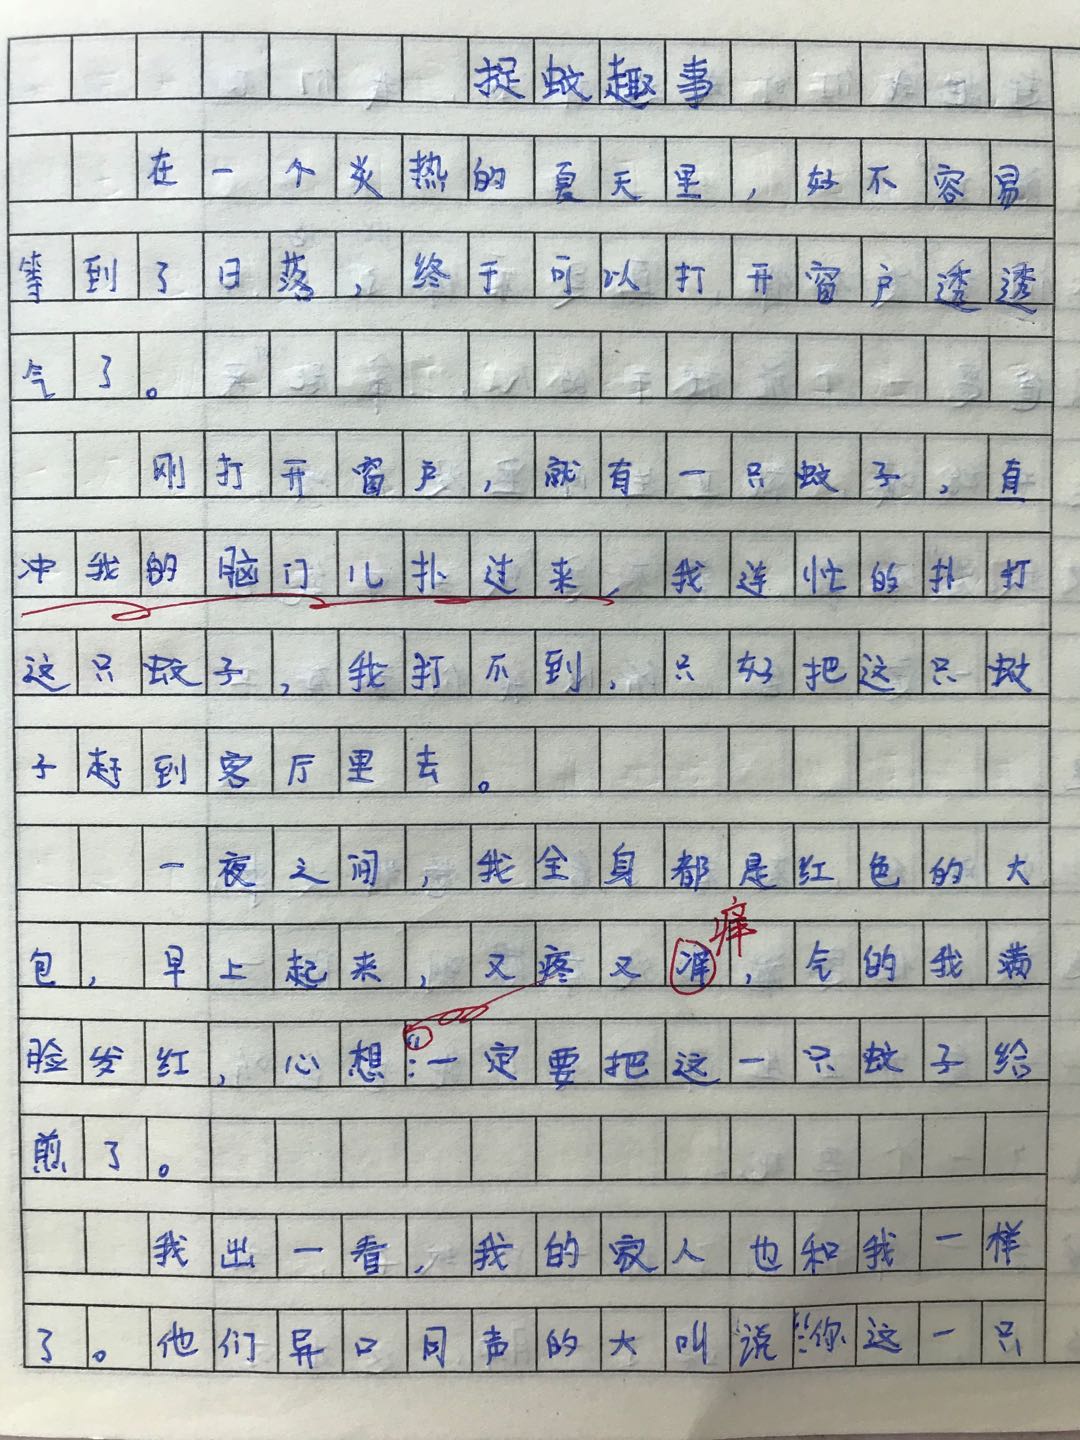 捉蚊趣事
在一个炎热的夏天里,好不容易
等到了日落,终于可以打开窗户透透
气了。
刚打开窗户,就有一只蚊子,直
冲我的脑门儿扑过来,我连忙的扑打
这只蚊子,我打不到,只好把这只蚊
子赶到客厅里去。
一夜之间,我全身都是红色的大
包,早上起来,又疼又,气的我满
痒
脸发红,心想:一定要把这一只蚊子给
煎了。
我出一看,我的家人也和我一样
了。他们异口同声的大叫说:“你这一只